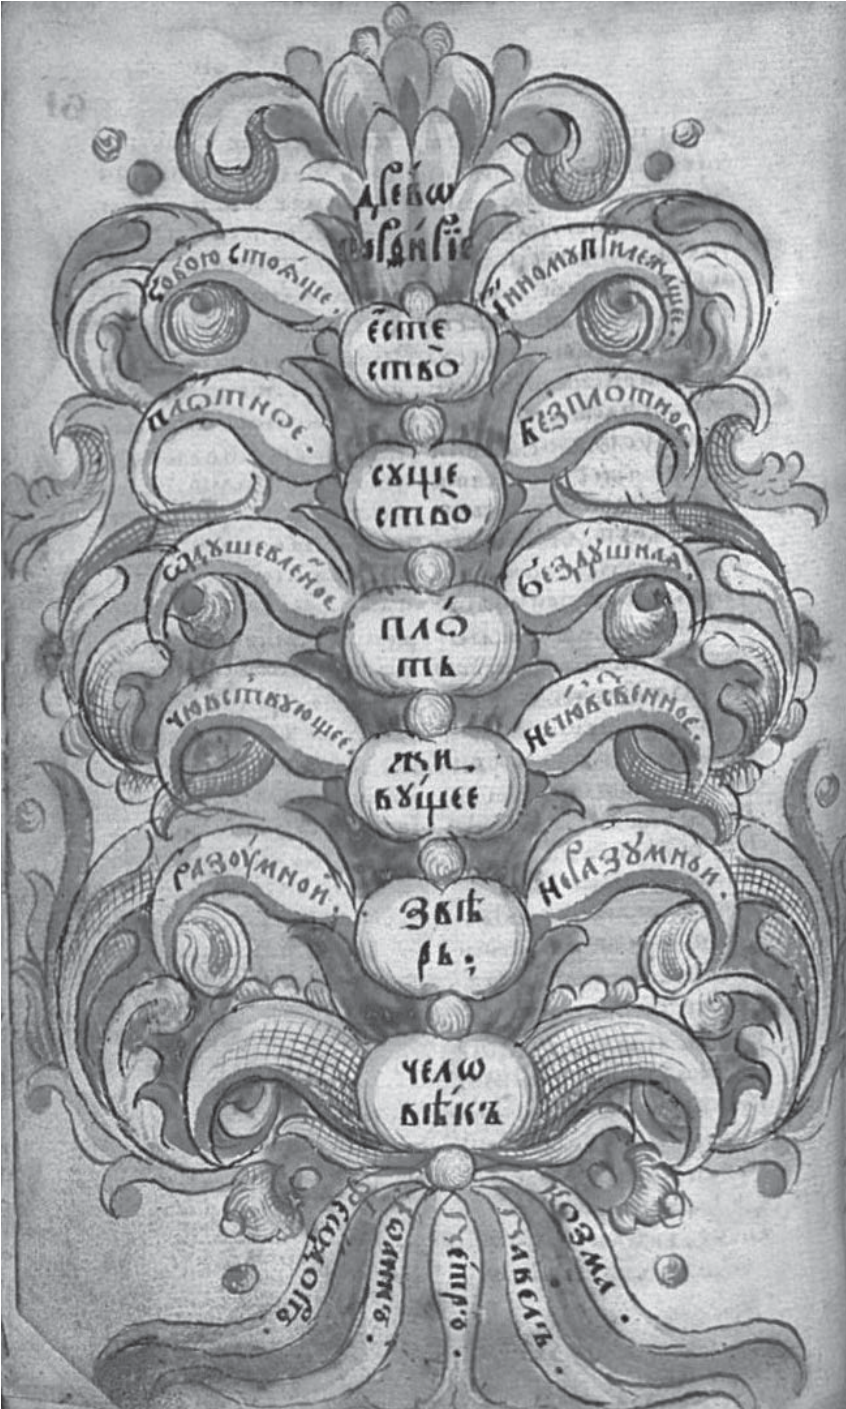 древѡ
Собою стоѧще.
Їнному прилежащее.
е҆сте
ство̀
плѡ́тное.
Безпло́тное
суще
ство̀
ѡдушевле́ное
бездꙋ́шила.
плѡ́
ть
чювствующее.
Нечю́вственное.
жи
вꙋ́щее
разоу́мной.
Неразꙋ́мный.
звѣ́
рь;
челѡ
вѣ́къ
Ѳеѡдоръ.
Іѡаннъ.
Пе́тръ.
Павелъ.
Козма.